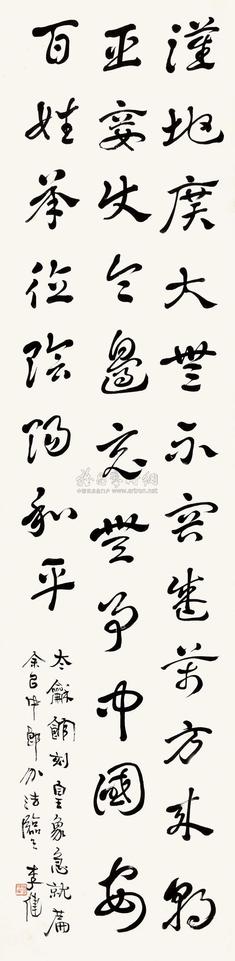 漢地廣大無不容盛萬方來朝
臣妾使令邊竟無事中國安
百姓承德陰陽和平
太龢館刻皇象急就篇
余以中郎分法臨之 李健
www.artron.net